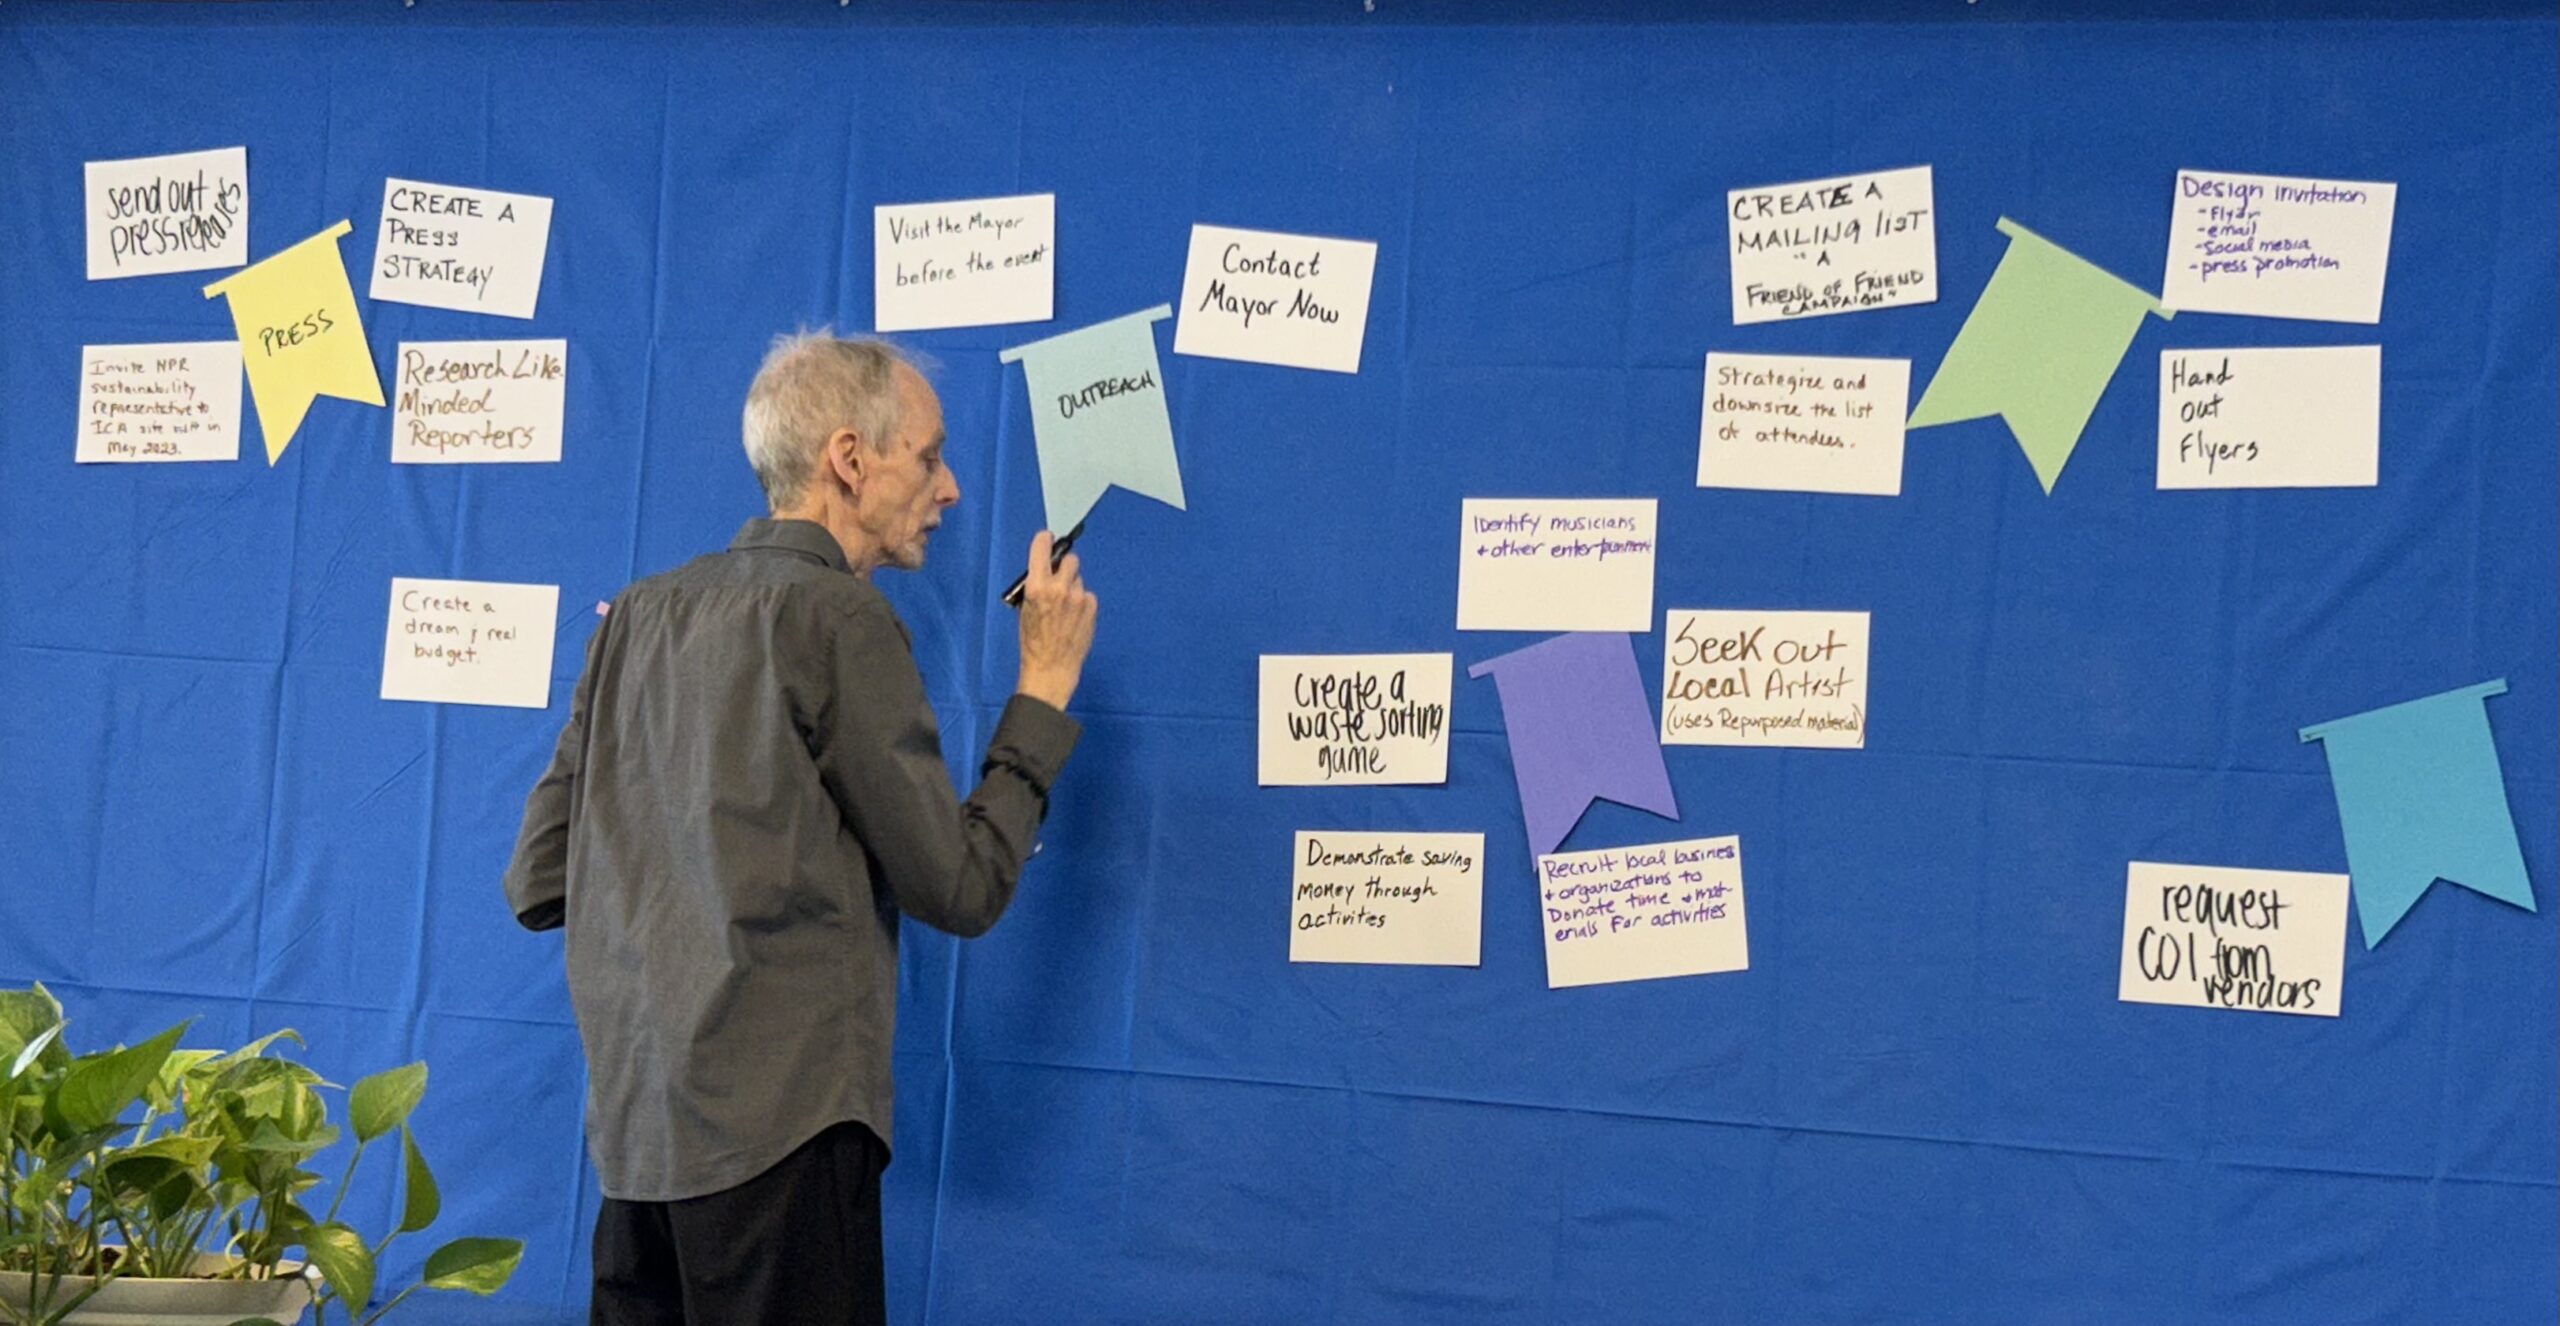 send out
press releases
CREATE A
PRESS
STRATEGY
PRESS
Invite NPR
sustainability
representative to
ICA site in
May 2023.
Research Like
Minded
Reporters
Create a
dream & real
budget.
Visit the Mayor
before the event
Contact
Mayor Now
OUTREACH
CREATE A
MAILING LIST
"A
FRIEND OF FRIEND
CAMPAIGN"
Design invitation
- Flyer
- email
- social media
- press promotion
Strategize and
downsize the list
of attendees.
Hand
out
Flyers
Identify musicians
+ other entertainment
create a
waste sorting
game
Seek out
Local Artist
(uses Repurposed material)
Demonstrate saving
money through
activities
Recruit local busines
+ organizations to
Donate time + mat-
erials for activities
request
COI from
vendors